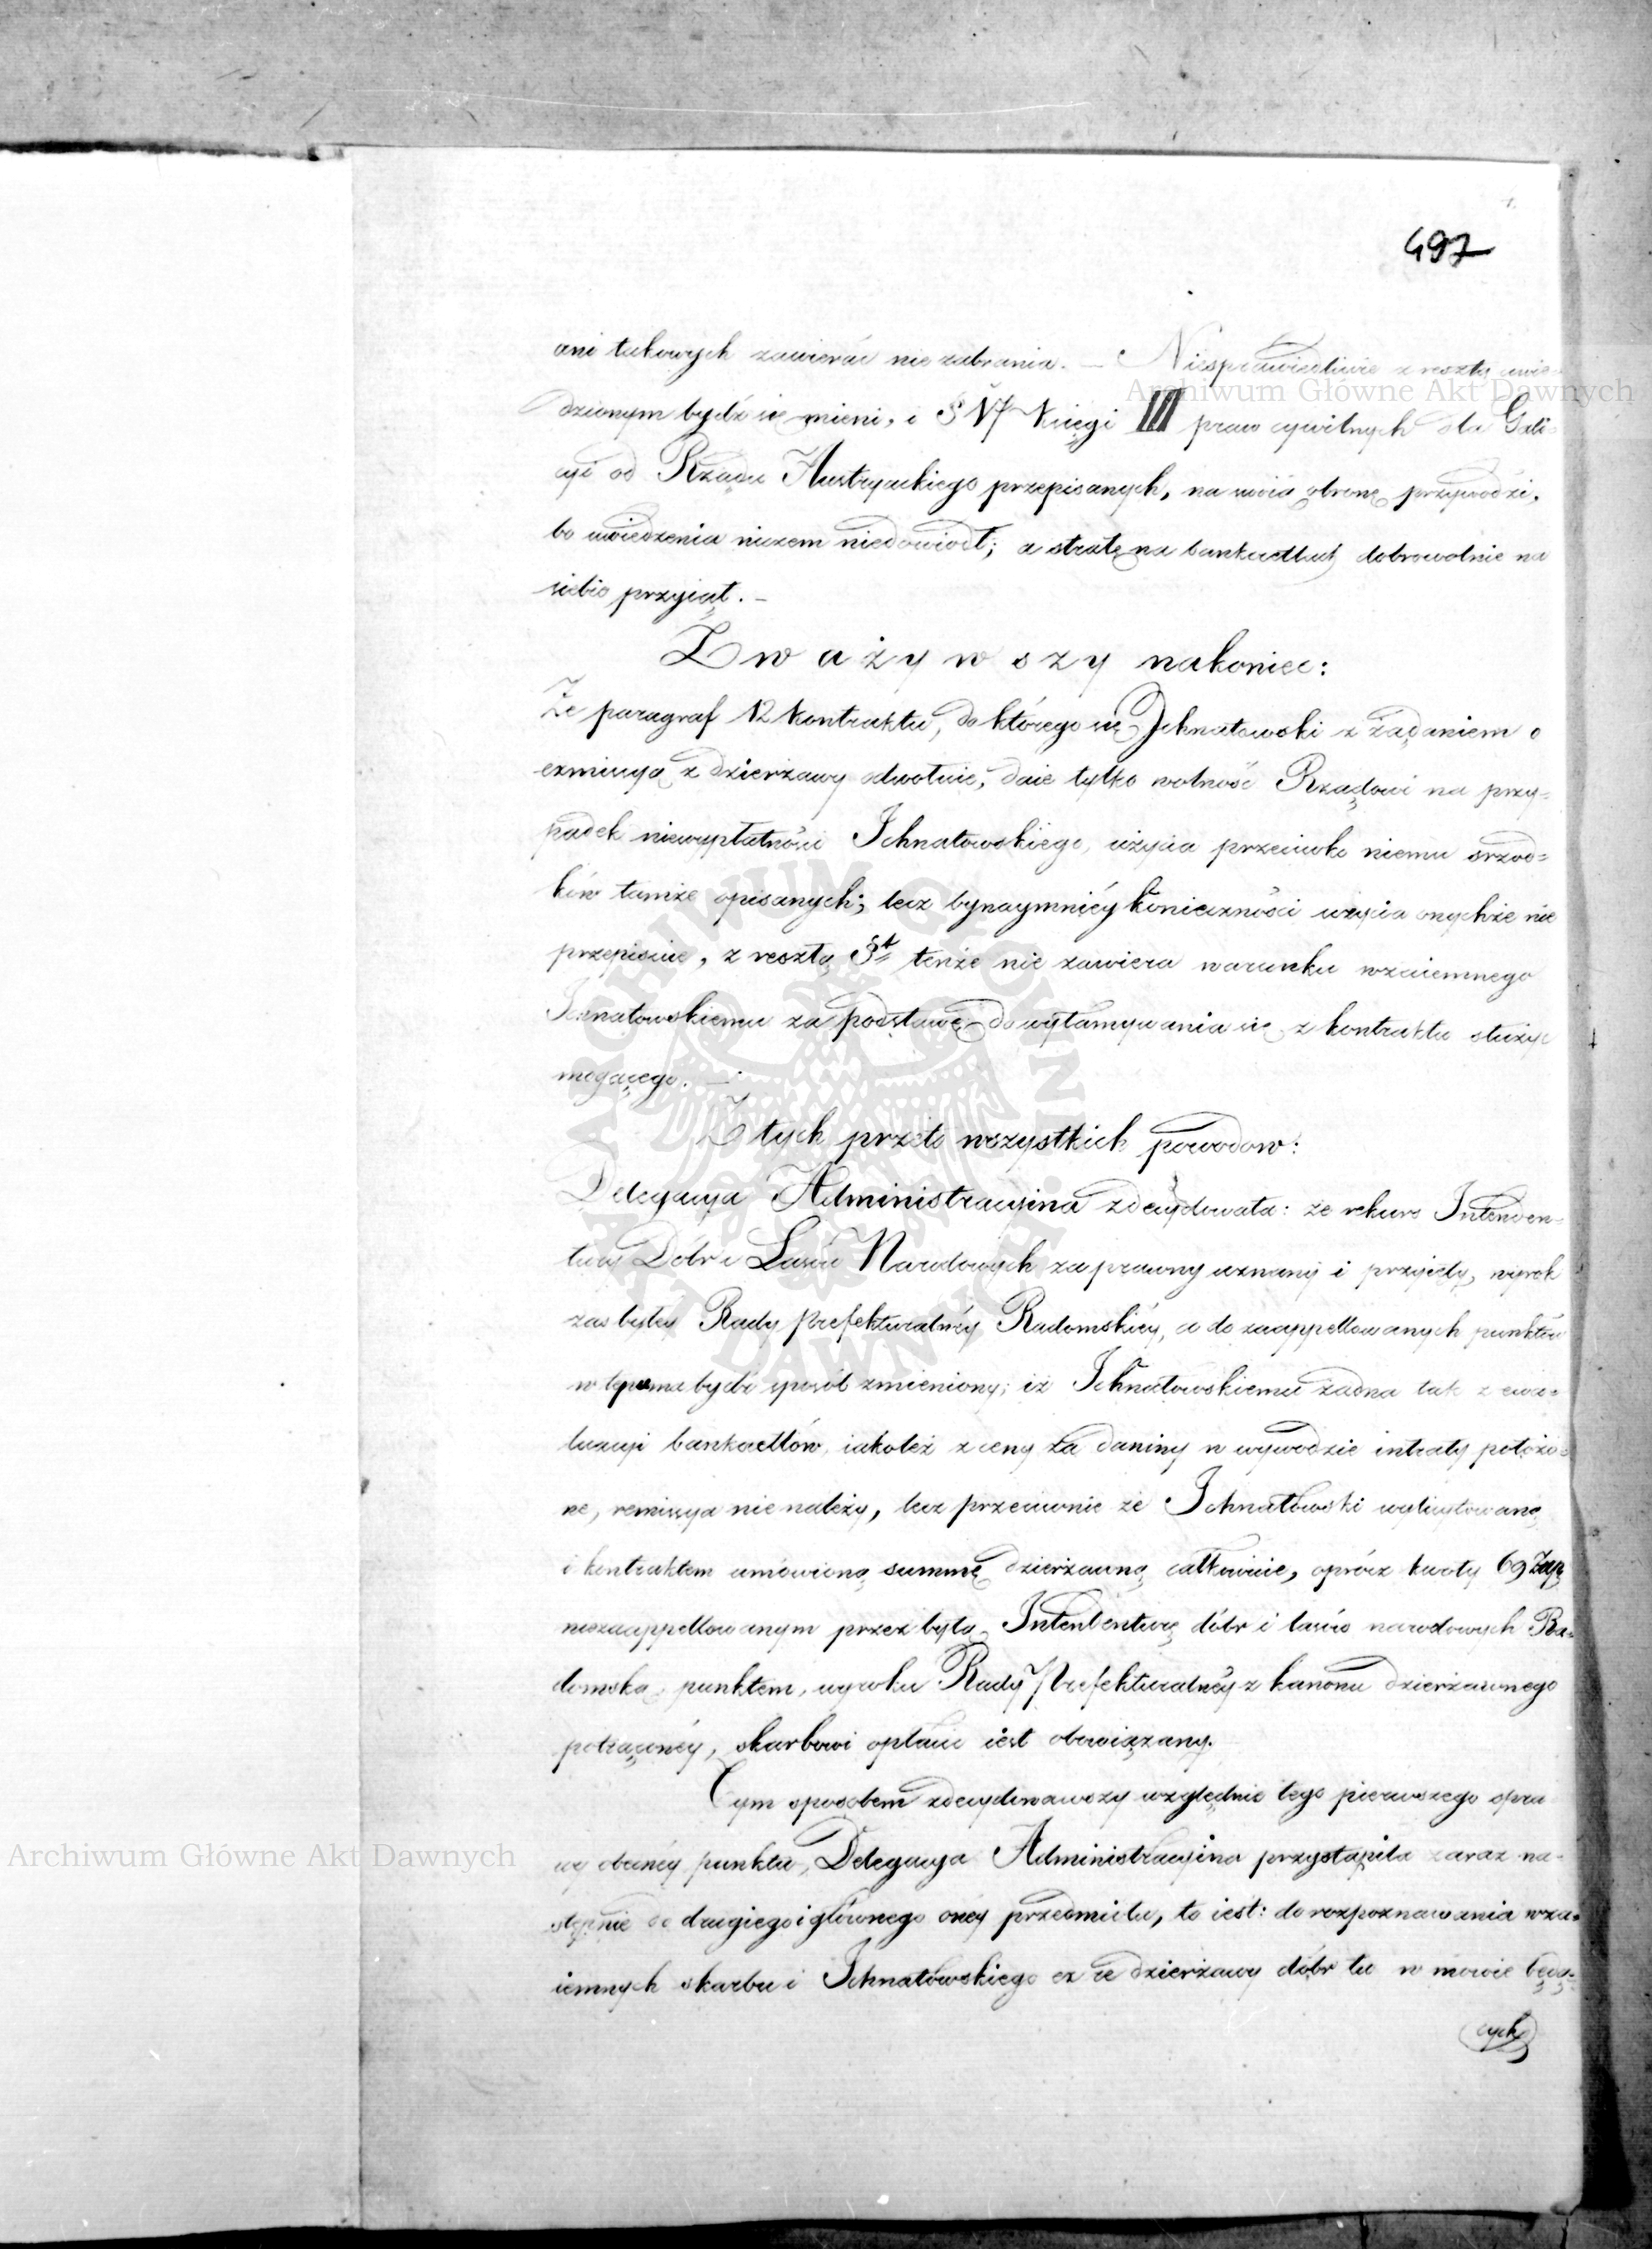 497
ani takowych zawierać nie zabrania. — Niesprawiedliwie z resztą uwie-
dzionym bydź się mieni, i § Księgi III praw cywilnych dla Gali-
cyi od Rządu Austryackiego przepisanych, na swoią obronę przywodzi,
bo uwiedzenia niczem niedowiódł; a stratę na bankocetlach dobrowolnie na
siebie przyiął. —
Zważywszy nakoniec:
Że paragraf 12 kontraktu, do którego się Ichnatowski z żądaniem o
exmissyą z dzierżawy odwołuie, daie tylko wolność Rządowi na przy-
padek niewypłatności Ichnatowskiego, użycia przeciwko niemu srzod-
ków tamże opisanych; lecz bynaymniéy konieczności użycia onychże nie
przepisuie, z resztą § tenże nie zawiera warunku wzaiemnego
Ichnatowskiemu za podstawę do wyłamywania się z kontraktu służyć
mogącego. —
Z tych przeto wszystkich powodow:
Delegacya Administracyina zdecydowała: że rekurs Intenden-
tury Dóbr i Lasów Narodowych za prawny uznany i przyięty, wyrok
zaś byłéy Rady Prefekturalnéy Radomskiéy, co do zaappellowanych punktów
w ten ma bydź sposób zmieniony; iż Ichnatowskiemu żadna tak z ewa-
luacyi bankocetlów, iakoteż z ceny za daniny w wywodzie intraty położo-
ne, remissya nie należy, lecz przeciwnie że Ichnatowski wylicytowaną
i kontraktem umówioną summę dzierżawną całkowicie, oprócz kwoty 69
niezaappellowanym przez byłą Intendenturę dóbr i lasów narodowych Ra-
domską punktem, wyroku Rady Prefekturalnéy z kanonu dzierżawnego
potrąconéy, skarbowi opłacić iest obowiązany.
Tym sposobem zdecydowawszy względnie tego pierwszego spra
wy obecnéy punktu, Delegacya Administracyina przystąpiła zaraz na-
stępnie do drugiego i głównego onéy przedmiotu, to iest: do rozpoznawania wza-
iemnych skarbu i Ichnatowskiego ex re dzierżawy dóbr tu w mowie będą-
cych
Archiwum Główne Akt Dawnych
Archiwum Główne Akt Dawnych
ARCHIWUM GŁÓWNE AKT DAWNYCH